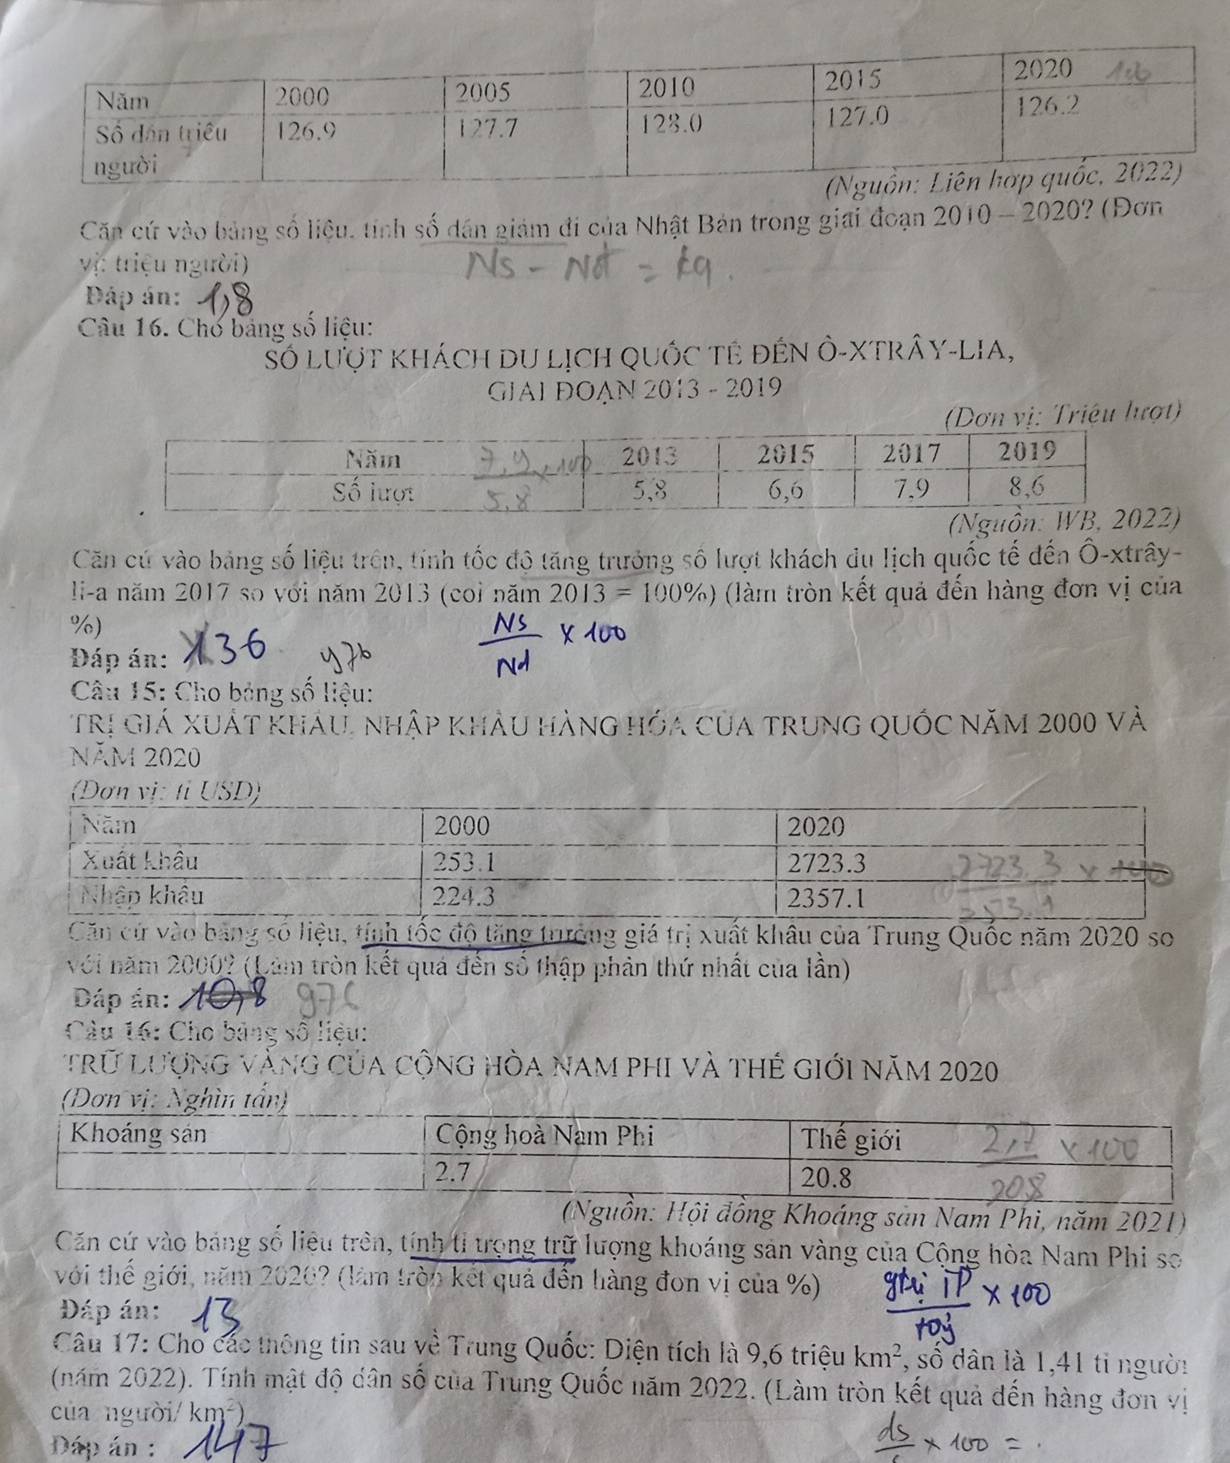 Năm 2000 2005 2010 2015 2020
Số dân triệu người 126.9 127.7 128.0 127.0 126.2
(Nguồn: Liên hợp quốc, 2022)
Căn cứ vào bảng số liệu, tính số dân giảm đi của Nhật Bản trong giai đoạn 2010 – 2020? (Đơn
vị: triệu người)
Ns - Nđ = kq.
Đáp án: 1,8
Câu 16. Cho bảng số liệu:
SỐ LƯỢT KHÁCH DU LỊCH QUỐC TẾ ĐẾN Ô-XTRÂY-LIA,
GIAI ĐOẠN 2013 - 2019
(Đơn vị: Triệu lượt)
Năm 7,9 x100 2013 2015 2017 2019
Số lượt 5,8 5,8 6,6 7,9 8,6
(Nguồn: WB, 2022)
Căn cứ vào bảng số liệu trên, tính tốc độ tăng trưởng số lượt khách du lịch quốc tế đến Ô-xtrây-
li-a năm 2017 so với năm 2013 (coi năm 2013 = 100%) (làm tròn kết quả đến hàng đơn vị của
%)
Ns x 100
Nđ
Đáp án: 136
Câu 15: Cho bảng số liệu:
TRỊ GIÁ XUẤT KHẨU, NHẬP KHẨU HÀNG HÓA CỦA TRUNG QUỐC NĂM 2000 VÀ
NĂM 2020
(Đơn vị: tỉ USD)
Năm 2000 2020
Xuất khẩu 253.1 2723.3 2723.3 x 100
Nhập khẩu 224.3 2357.1 253.1
Căn cứ vào bảng số liệu, tính tốc độ tăng trưởng giá trị xuất khẩu của Trung Quốc năm 2020 so
với năm 2000? (Làm tròn kết quả đến số thập phân thứ nhất của lần)
Đáp án: 10,8
Câu 16: Cho bảng số liệu:
TRỮ LƯỢNG VÀNG CỦA CỘNG HÒA NAM PHI VÀ THẾ GIỚI NĂM 2020
(Đơn vị: Nghìn tấn)
Khoáng sản Cộng hoà Nam Phi Thế giới 2,7 x 100
2.7 20.8 20.8
(Nguồn: Hội đồng Khoáng sản Nam Phi, năm 2021)
Căn cứ vào bảng số liệu trên, tính tỉ trọng trữ lượng khoáng sản vàng của Cộng hòa Nam Phi so
với thế giới, năm 2020? (làm tròn kết quả đến hàng đơn vị của %)
gtrị TP x 100
Đáp án: 13
Câu 17: Cho các thông tin sau về Trung Quốc: Diện tích là 9,6 triệu km², số dân là 1,41 tỉ người
(năm 2022). Tính mật độ dân số của Trung Quốc năm 2022. (Làm tròn kết quả đến hàng đơn vị
của người/ km²)
Đáp án : 147
ds x 100 = .